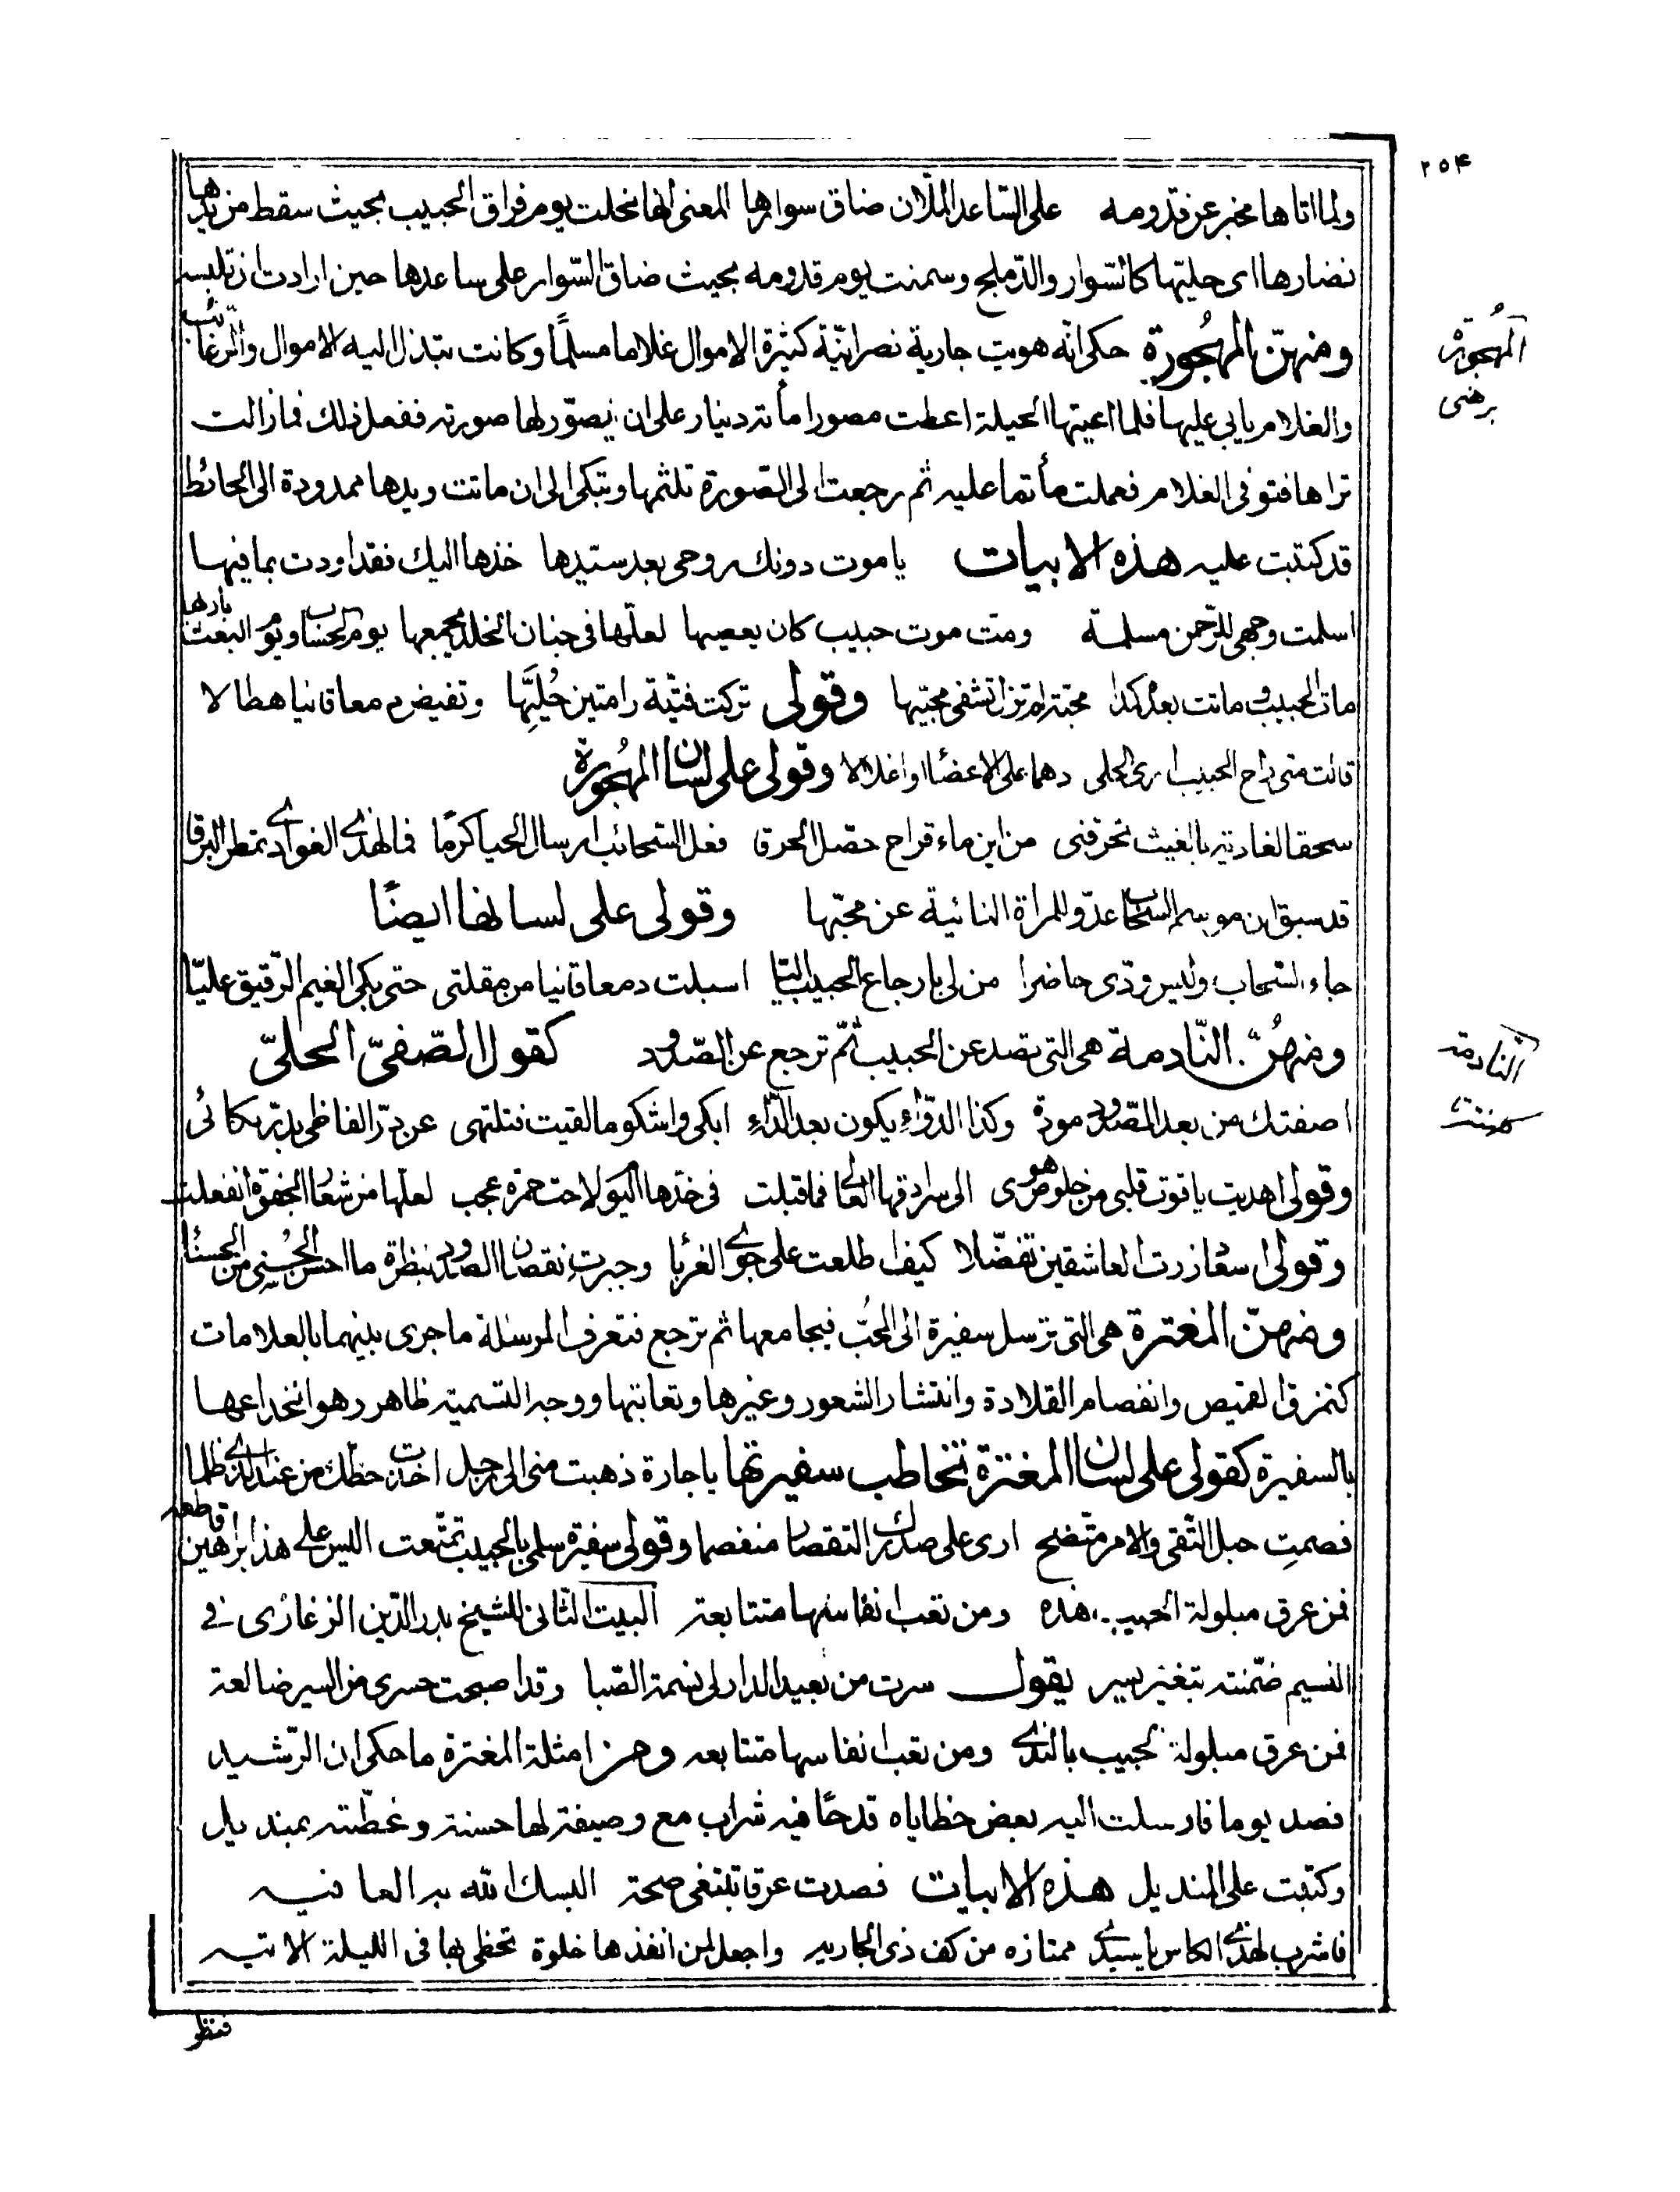 ۲۵۴
ولما اتاها مخبر عن قدومه على الساعد الملآن ضاق سوارها المعنى انها نحلت يوم فراق الحبيب بحيث سقط من يدها
نضارها اى حليتها كالسّوار والدّملج وسمنت يوم قدومه بحيث ضاق السّوار على ساعدها حين ارادت ان تلبسه
ومنهنّ المهُجورة حكى انّه هويت جارية نصرانيّة كثيرة الاموال غلاما مسلمًا وكانت تبتذل اليه الاموال والرغائب
المهُجورة
برهنى
والغلام يابى عليها فلما اعيتها الحيلة اعطت مصورا مأته دينار على ان يصوّر لها صورته ففعل ذلك فما زالت
تراها فتوفى الغلام فعملت مأتما عليه ثم رجعت الى الصّورة تلثمها وتبكى الى ان ماتت ويدها ممدودة الى الحائط
قد كتبت عليه هذه الابيات يا موت دونك روحى بعد سيّدها خذها اليك فقد اودت بما فيها
اسلمت وجهى للرّحمن مسلمة ومت موت حبيب كان يعصيها لعلّها فى جنان الخلد يجمعها يوم الحساب ويوم البعث باريها
مات الحبيب وماتت بعده كمدا محبّة لم تزل تشفى محبّيها وقولى تركت فتيّة رامتين حُلِيَّها وتفيض دمعا قانيا هطالا
قالت متى راح الحبيب ارى الحلى دهما على الاعضاء او اغلالا وقولى على لسان المهُجورة
سحقا لغادية بالغيث تحرقنى من اين ماء قراح حصّل الحرق فعل السّحائب ارسال الحيا كرمًا فما لهذى الغوادى تمطر البرقا
قد سبق ان موسم السّحاب عدوّ للمراة النائية عن محبّها وقولى على لسانها ايضًا
جاء السّحاب وليس ودّى حاضرا من لى بارجاع الحبيب اليّا اسبلت دمعا قانيا من مقلتى حتى بكى الغيم الرّقيق عليّا
ومنهُنّ النّادمة هى التى تصد عن الحبيب ثمّ ترجع عن الصّدود كقول الصّفىّ الحلىّ
النّادمة
اصفتك من بعد الصّدود مودة وكذا الدّواء يكون بعد الدّاءِ ابكى واشكو ما لقيت فتلتهى عن درّ الفاظى بدرّ بكائى
وقولى اهديت ياقوت قلبى من خلوص هوى الى سرادقها العالى فما قبلت فى خدّها اليوم لاحت حمرة عجب لعلّها من شعاع الجفوة انفعلت
وقولى اسعاد زرت العاشقين تفضّلا كيف اطلعت على جوى الغربا وجبرتِ نقصان الصّدود بنظرة ما احسن الحُسنى من الحسناء
ومنهنّ المغترة هى التى ترسل سفيرة الى المحُبّ فيجامعها ثم ترجع فتعرف المرسلة ما جرى بينهما بالعلامات
كتمزق القميص وانفصام القلادة وانتشار الشعور وغيرها وتعاتبها ووجه التسمية ظاهر وهو انخداعها
بالسفيرة كقولى على لسان المغترة تخاطب سفيرتها يا جارة ذهبت منى الى رجل اخذت حظك من عند الذى ظلما
فصمتِ حبل التّقى والامر متّضح ارى على صدرك التقصار منفصما وقولى سفيرة سلمى بالحبيب تمتّعت اليس على هذا براهين قاطعه
فمن عرق مبلولة الجيب هذه ومن تعب انفاسها متتابعة البيت الثّانى للشيخ بدر الدّين الزغارى فى
النسيم ضمّنته بتغيير يسير يقول سرت من بعيد الدار لى نسمة الصّبا وقد اصبحت حسرى من السير ضالعة
فمن عرق مبلولة الجيب بالنّدى ومن تعب انفاسها متتابعه ومن امثلة المغترة ما حكى ان الرّشيد
فصد يوما فارسلت اليه بعض حظاياه قدحًا فيه شراب مع وصيفة لها حسنة وغطّته بمنديل
وكتبت على المنديل هذه الابيات فصدت عرقا تبتغى صحة البسك الله به العافيه
فاشرب لهذى الكاس يا سيّدى ممتازه من كف ذى الجاريه واجعل لمن انفذها خلوة تحظى بها فى الليلة الاتيه
فنظر